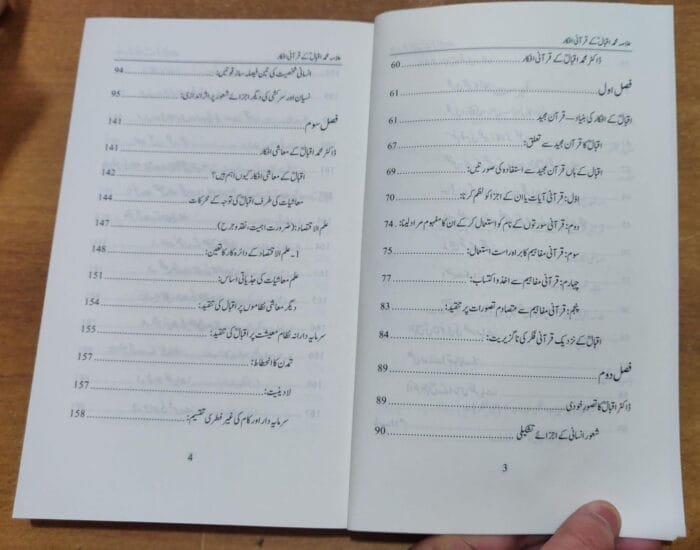 علامہ محمد اقبالؒ کے قرآنی افکار
ڈاکٹر محمد اقبالؒ کے قرآنی افکار ........ 60
فصل اول ........ 61
اقبالؒ کے افکار کی بنیاد—قرآن مجید ........ 61
اقبالؒ کا قرآن مجید سے تعلق: ........ 67
اقبال کے ہاں قرآن مجید سے استفادہ کی صورتیں: ........ 69
اوّل: قرآنی آیات یا ان کے اجزا کو نظم کرنا: ........ 70
دوم: قرآنی سورتوں کے نام کو استعمال کر کے ان کا مفہوم مراد لینا: 74
سوم: قرآنی مفاہیم کا براہ راست استعمال: ........ 75
چہارم: قرآنی مفاہیم سے اخذ و اکتساب: ........ 77
پنجم: قرآنی مفاہیم سے متصادم تصورات پر تنقید: ........ 83
اقبالؒ کے نزدیک قرآنی فکر کی ناگزیریت: ........ 84
فصل دوم ........ 89
ڈاکٹر اقبالؒ کا تصورِ خودی ........ 89
شعور انسانی کے اجزائے تشکیلی ........ 90
3
علامہ محمد اقبالؒ کے قرآنی افکار
انسانی شخصیت کی تین فیصلہ ساز قوتیں: ........ 94
نسیان اور سرکشی کی دیگر اجزائے شعور پر اثر اندازی: ........ 95
فصل سوم ........ 141
ڈاکٹر محمد اقبالؒ کے معاشی افکار ........ 141
اقبالؒ کے معاشی افکار کیوں اہم ہیں؟ ........ 142
معاشیات کی طرف اقبالؒ کی توجہ کے محرکات ........ 144
علم الاقتصاد: (ضرورت، اہمیت، نقد و جرح) ........ 147
1۔ علم الاقتصاد کے دائرہ کار کا تعین: ........ 148
علم معاشیات کی جذباتی اساس: ........ 151
دیگر معاشی نظاموں پر اقبال کی تنقید: ........ 154
سرمایہ دارانہ نظام معیشت پر اقبالؒ کی تنقید: ........ 155
تمدن کا انحطاط: ........ 157
لادینیت: ........ 157
سرمایہ دار اور کام کی غیر فطری تقسیم: ........ 158
4